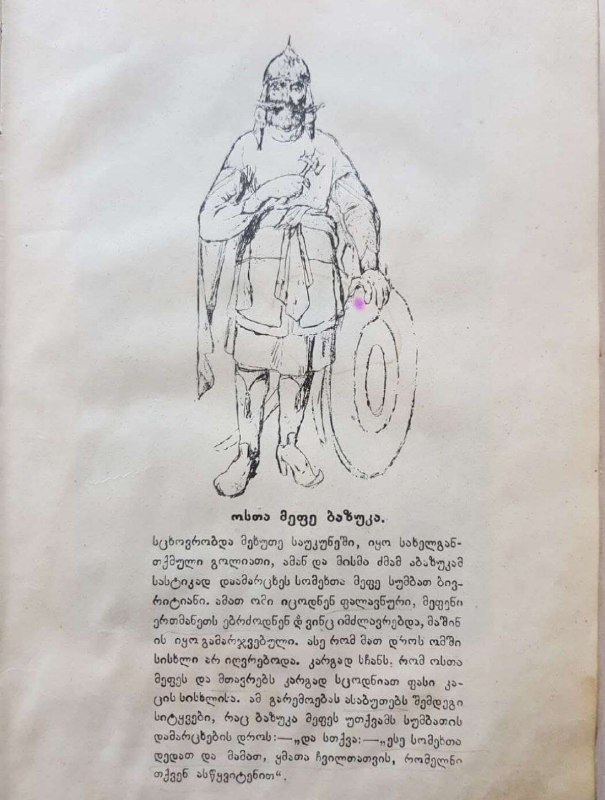 ოსთა მეფე ბაზუკა.
სცხოვრობდა მეხუთე საუკუნეში, იყო სახელგან-
თქმული გოლიათი, ამან და მისმა ძმამ აბაზუკამ
სასტიკად დაამარცხეს სომეხთა მეფე სუმბათ ბივ-
რიტიანი. ამათ ომი იცოდნენ ფალავნური, მეფენი
ერთმანეთს ებრძოდნენ & ვინც იმძლავრებდა, მაშინ
ის იყო გამარჯვებული. ასე რომ მათ დროს ომში
სისხლი არ იღვრებოდა. კარგად სჩანს. რომ ოსთა
მეფეს და მთავრებს კარგად სცოდნიათ ფასი კა-
ცის სისხლისა. ამ გარემოებას ასაბუთებს შემდეგი
სიტყვები, რაც ბაზუკა მეფეს უთქვამს სუმბათის
დამარცხების დროს:—„და სთქვა:—„ესე სომეხთა
დედათ და მამათ, ყმათა ჩვილთათვის, რომელნი
თქვენ ასწყვიტენით“.